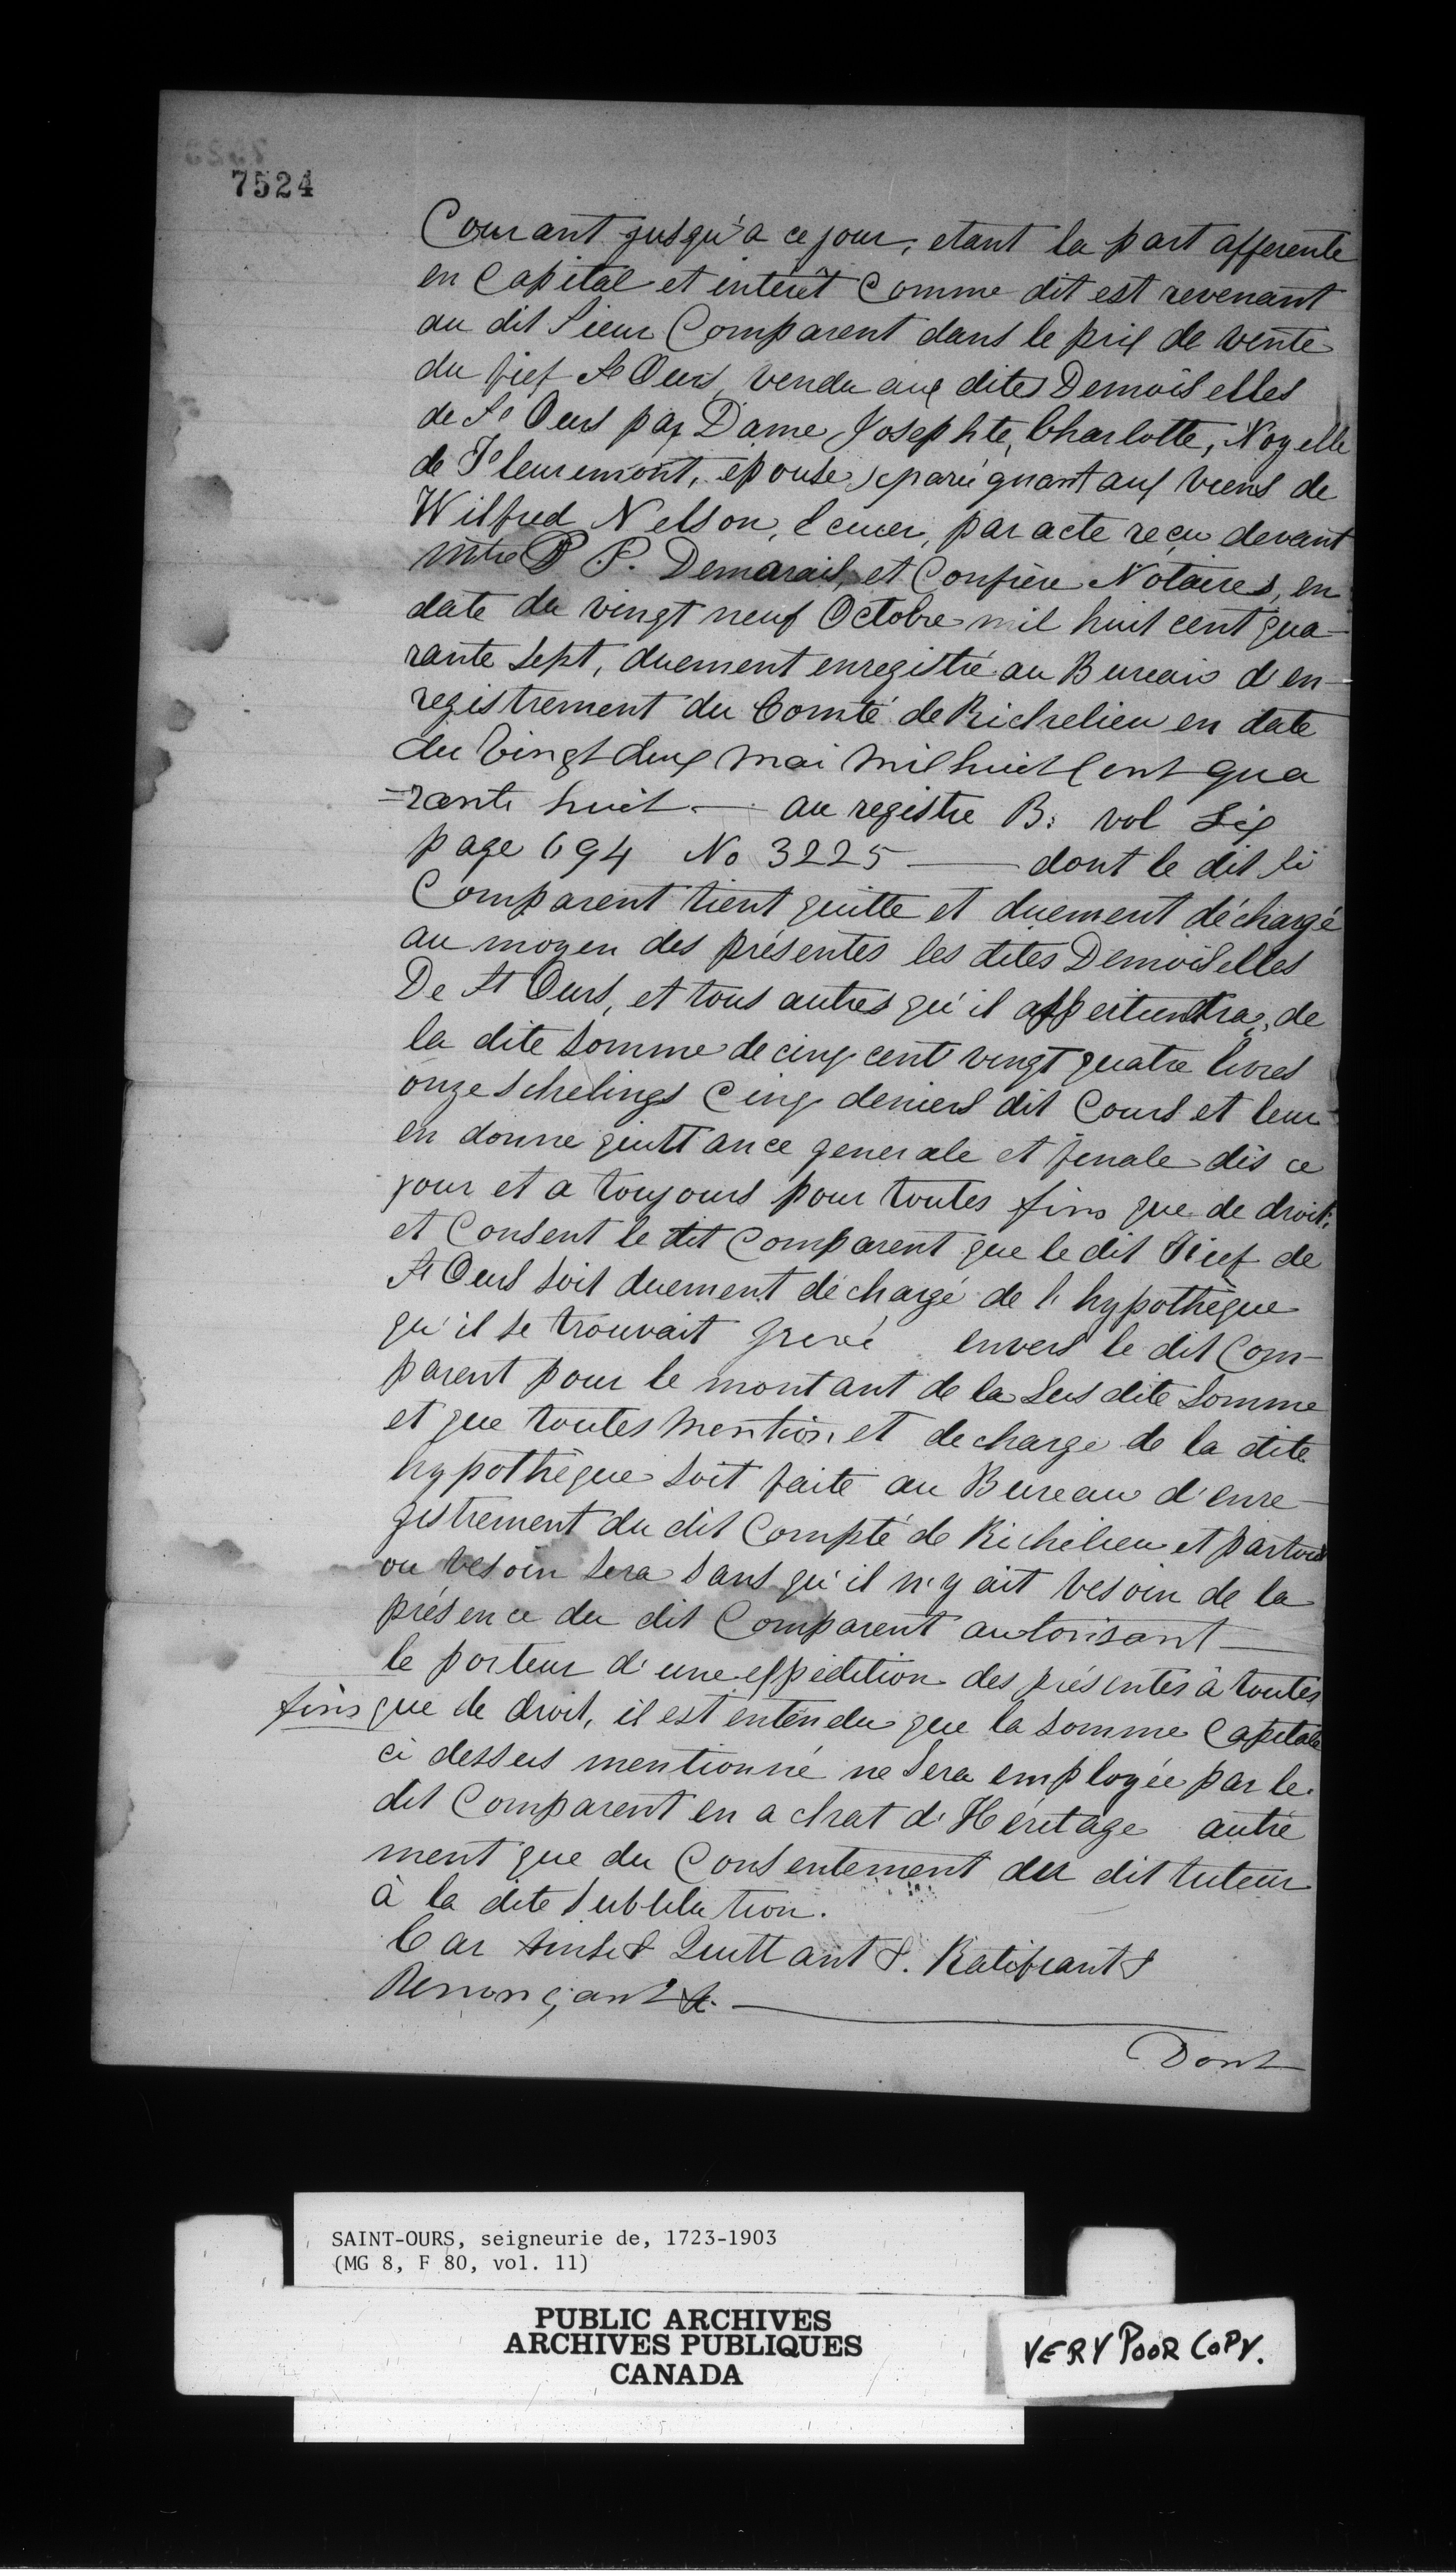 7524
Courant jusqu'a ce jour, etant la part afferente
en Capital et interêt Comme dit est revenant
au dit Sieur Comparent dans le prix de vente
du fief St Ours, vendu aux dites Demoiselles
de St Ours par Dame Josephte, Charlotte, Noyelle
de Fleuremont, epouse separée quant aux biens de
Wilfred Nelson, Ecuier, par acte reçu devant
Mtre P. P. Demarais, et Confrère Notaires, en
date du vingt neuf Octobre mil huit cent qua-
rante sept, duement enregistré au Bureau d'en-
registrement du Comté de Richelieu en date
du Vingt deux Mai Mil huit Cent qua
=rante huit — au registre B: vol Six
page 694 No 3225 — dont le dit Sr
Comparent tient quitte et duement déchargé
au moyen des présentes les dites Demoiselles
De St Ours, et tous autres qu'il appertiendra, de
la dite Somme de cinq cent vingt quatre livres
onze Schelings Cinq deniers dit Cours et leur
en donne quittance generale et finale dès ce
jour et a toujours pour toutes fins que de droit;
et Consent le dit Comparent que le dit Fief de
St Ours soit duement déchargé de l'hypothèque
qu'il se trouvait grevé envers le dit Com-
parent pour le montant de la Sus dite Somme
et que toutes Mention et decharge de la dite
hypothèque soit faite au Bureau d'enre-
gistrement du dit Compté de Richelieu et partout
ou besoin sera sans qu'il n'y ait besoin de la
présence du dit Comparent autorisant —
le porteur d'une expédition des présentes à toutes
fins que de droit, il est entendu que la somme Capitale
ci dessus mentionné ne Sera employée par le
dit Comparent en achat d'Héritage autre
ment que du Consentement du dit tuteur
à la dite Substitution.
Car Quittant &. Ratifiant &
Renonçant &. —
Dont
SAINT-OURS, seigneurie de, 1723-1903
(MG 8, F 80, vol. 11)
PUBLIC ARCHIVES
ARCHIVES PUBLIQUES
CANADA
VERY POOR COPY.